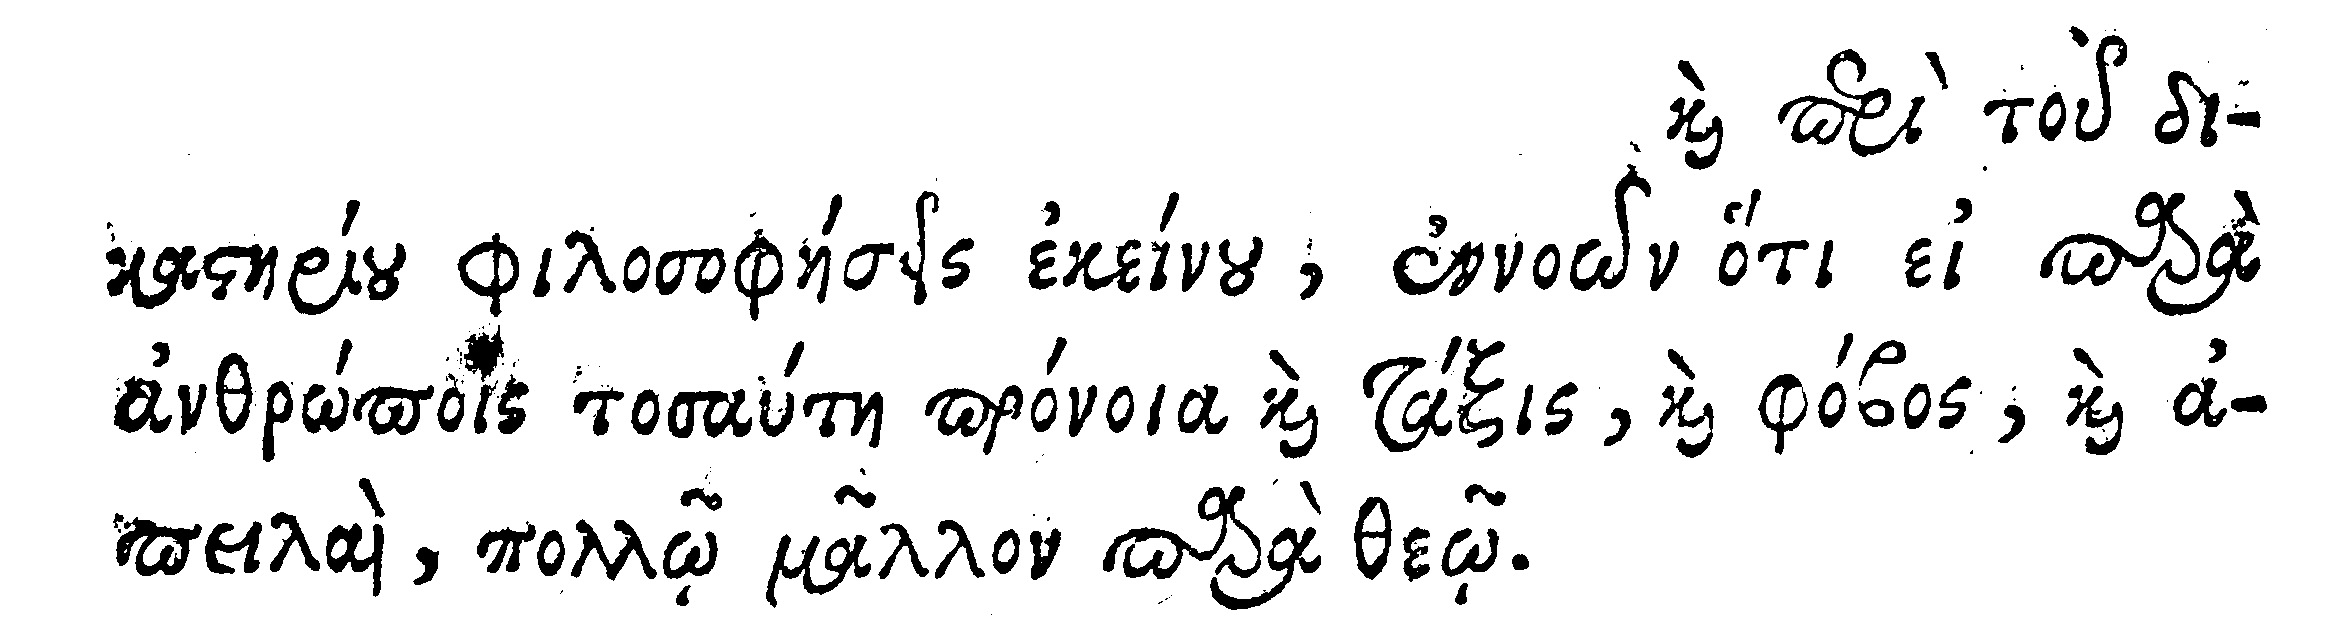 καὶ περὶ τοῦ δι-
καστηρίου φιλοσοφήσεις ἐκείνου, ἐννοῶν ὅτι εἰ παρὰ
ἀνθρώποις τοσαύτη πρόνοια καὶ τάξις, καὶ φόβος, καὶ ἀ-
πειλαὶ, πολλῷ μᾶλλον παρὰ θεῷ.